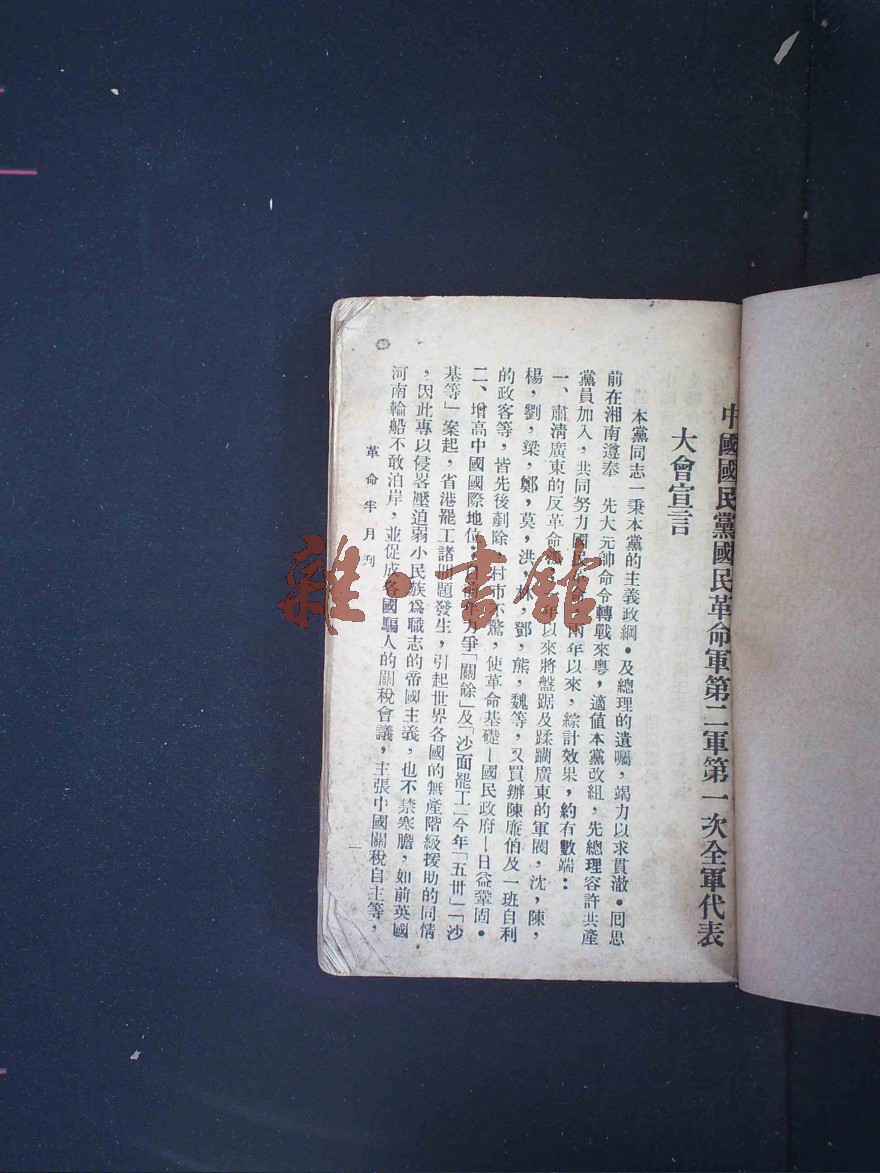 中國國民黨國民革命軍第二軍第一次全軍代表
大會宣言
本黨同志一秉本黨的主義政綱・及總理的遺囑，竭力以求貫澈・囘思
前在湘南遵奉　先大元帥命令轉戰來粵，適值本黨改組，先總理容許共產
黨員加入，共同努力國民革命，兩年以來，綜計效果，約有數端：
一、肅清廣東的反革命派年以來將盤踞及蹂躪廣東的軍閥，沈，陳，
楊，劉，梁，鄭，莫，洪，林，鄧，熊，魏等，又買辦陳廉伯及一班自利
的政客等，皆先後剷除，村市不驚，使革命基礎—國民政府—日益鞏固・
二、增高中國國際地位：自前年力爭「關餘」及「沙面罷工」今年「五卅」「沙
基等」案起，省港罷工諸問題發生，引起世界各國的無產階級援助的同情
，因此專以侵畧壓迫弱小民族爲職志的帝國主義，也不禁寒膽，如前英國
河南輪船不敢泊岸，並促成各國騙人的關稅會議，主張中國關稅自主等，
革命半月刊
一
雜・書館